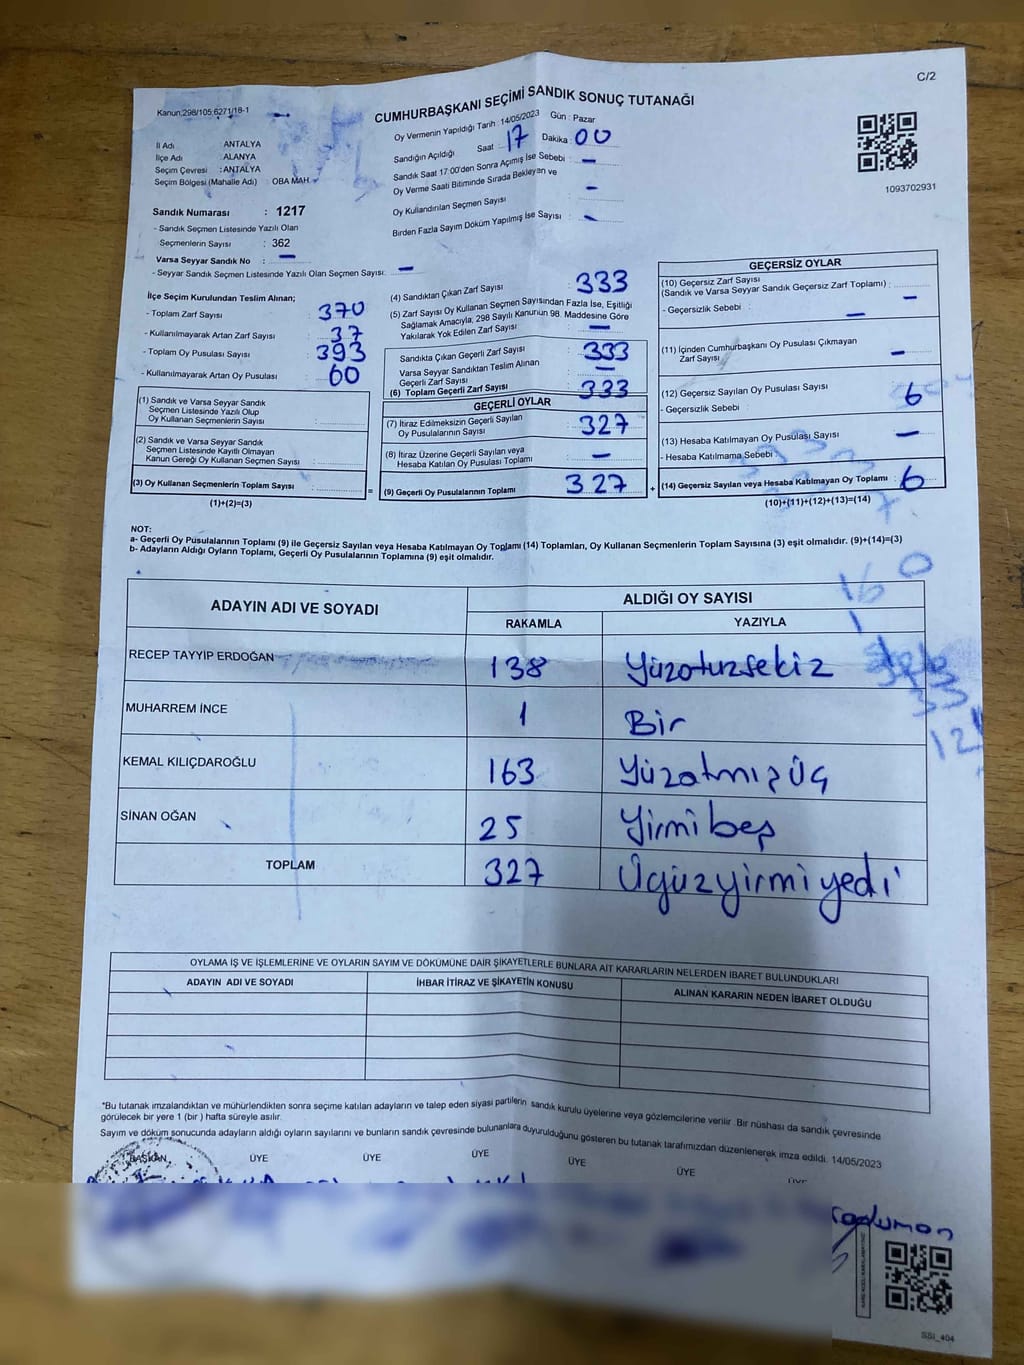 C/2
Kanun:298/105;6271/18-1
CUMHURBAŞKANI SEÇİMİ SANDIK SONUÇ TUTANAĞI
Oy Vermenin Yapıldığı Tarih : 14/05/2023 Gün : Pazar
İl Adı : ANTALYA
İlçe Adı : ALANYA
Seçim Çevresi : ANTALYA
Seçim Bölgesi (Mahalle Adı) : OBA MAH.
Sandığın Açıldığı Saat : 17 Dakika : 00
Sandık Saat 17:00'den Sonra Açılmış İse Sebebi : –
Oy Verme Saati Bitiminde Sırada Bekleyen ve
Oy Kullandırılan Seçmen Sayısı : –
Birden Fazla Sayım Döküm Yapılmış İse Sayısı : –
1093702931
Sandık Numarası : 1217
- Sandık Seçmen Listesinde Yazılı Olan
Seçmenlerin Sayısı : 362
Varsa Seyyar Sandık No : –
- Seyyar Sandık Seçmen Listesinde Yazılı Olan Seçmen Sayısı: –
İlçe Seçim Kurulundan Teslim Alınan;
- Toplam Zarf Sayısı : 370
- Kullanılmayarak Artan Zarf Sayısı : 37
- Toplam Oy Pusulası Sayısı : 393
- Kullanılmayarak Artan Oy Pusulası : 60
(1) Sandık ve Varsa Seyyar Sandık
Seçmen Listesinde Yazılı Olup
Oy Kullanan Seçmenlerin Sayısı :
(2) Sandık ve Varsa Seyyar Sandık
Seçmen Listesinde Kayıtlı Olmayan
Kanun Gereği Oy Kullanan Seçmen Sayısı :
(3) Oy Kullanan Seçmenlerin Toplam Sayısı :
(1)+(2)=(3)
(4) Sandıktan Çıkan Zarf Sayısı : 333
(5) Zarf Sayısı Oy Kullanan Seçmen Sayısından Fazla İse, Eşitliği
Sağlamak Amacıyla; 298 Sayılı Kanunun 98. Maddesine Göre
Yakılarak Yok Edilen Zarf Sayısı : –
Sandıkta Çıkan Geçerli Zarf Sayısı : 333
Varsa Seyyar Sandıktan Teslim Alınan
Geçerli Zarf Sayısı : –
(6) Toplam Geçerli Zarf Sayısı : 333
GEÇERLİ OYLAR
(7) İtiraz Edilmeksizin Geçerli Sayılan
Oy Pusulalarının Sayısı : 327
(8) İtiraz Üzerine Geçerli Sayılan veya
Hesaba Katılan Oy Pusulası Toplamı : –
= (9) Geçerli Oy Pusulalarının Toplamı : 327
GEÇERSİZ OYLAR
(10) Geçersiz Zarf Sayısı
(Sandık ve Varsa Seyyar Sandık Geçersiz Zarf Toplamı) : –
- Geçersizlik Sebebi : –
(11) İçinden Cumhurbaşkanı Oy Pusulası Çıkmayan
Zarf Sayısı : –
(12) Geçersiz Sayılan Oy Pusulası Sayısı : 6
- Geçersizlik Sebebi :
(13) Hesaba Katılmayan Oy Pusulası Sayısı : –
- Hesaba Katılmama Sebebi :
+ (14) Geçersiz Sayılan veya Hesaba Katılmayan Oy Toplamı : 6
(10)+(11)+(12)+(13)=(14)
NOT:
a- Geçerli Oy Pusulalarının Toplamı (9) ile Geçersiz Sayılan veya Hesaba Katılmayan Oy Toplamı (14) Toplamları, Oy Kullanan Seçmenlerin Toplam Sayısına (3) eşit olmalıdır. (9)+(14)=(3)
b- Adayların Aldığı Oyların Toplamı, Geçerli Oy Pusulalarının Toplamına (9) eşit olmalıdır.
ADAYIN ADI VE SOYADI ALDIĞI OY SAYISI
RAKAMLA YAZIYLA
RECEP TAYYİP ERDOĞAN 138 Yüzotuzsekiz
MUHARREM İNCE 1 Bir
KEMAL KILIÇDAROĞLU 163 Yüzatmışüç
SİNAN OĞAN 25 Yirmibeş
TOPLAM 327 Üçyüzyirmiyedi
16 0
1
12
OYLAMA İŞ VE İŞLEMLERİNE VE OYLARIN SAYIM VE DÖKÜMÜNE DAİR ŞİKAYETLERLE BUNLARA AİT KARARLARIN NELERDEN İBARET BULUNDUKLARI
ADAYIN ADI VE SOYADI İHBAR İTİRAZ VE ŞİKAYETİN KONUSU ALINAN KARARIN NEDEN İBARET OLDUĞU
*Bu tutanak imzalandıktan ve mühürlendikten sonra seçime katılan adayların ve talep eden siyasi partilerin sandık kurulu üyelerine veya gözlemcilerine verilir. Bir nüshası da sandık çevresinde
görülecek bir yere 1 (bir ) hafta süreyle asılır.
Sayım ve döküm sonucunda adayların aldığı oyların sayılarını ve bunların sandık çevresinde bulunanlara duyurulduğunu gösteren bu tutanak tarafımızdan düzenlenerek imza edildi. 14/05/2023
BAŞKAN ÜYE ÜYE ÜYE ÜYE ÜYE
SSI_404